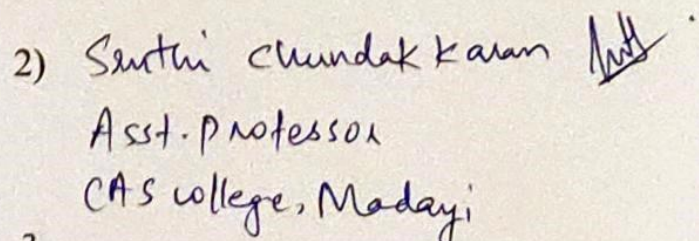 2) Sruthi Chundakkaran
Asst. Professor
CAS College, Madayi